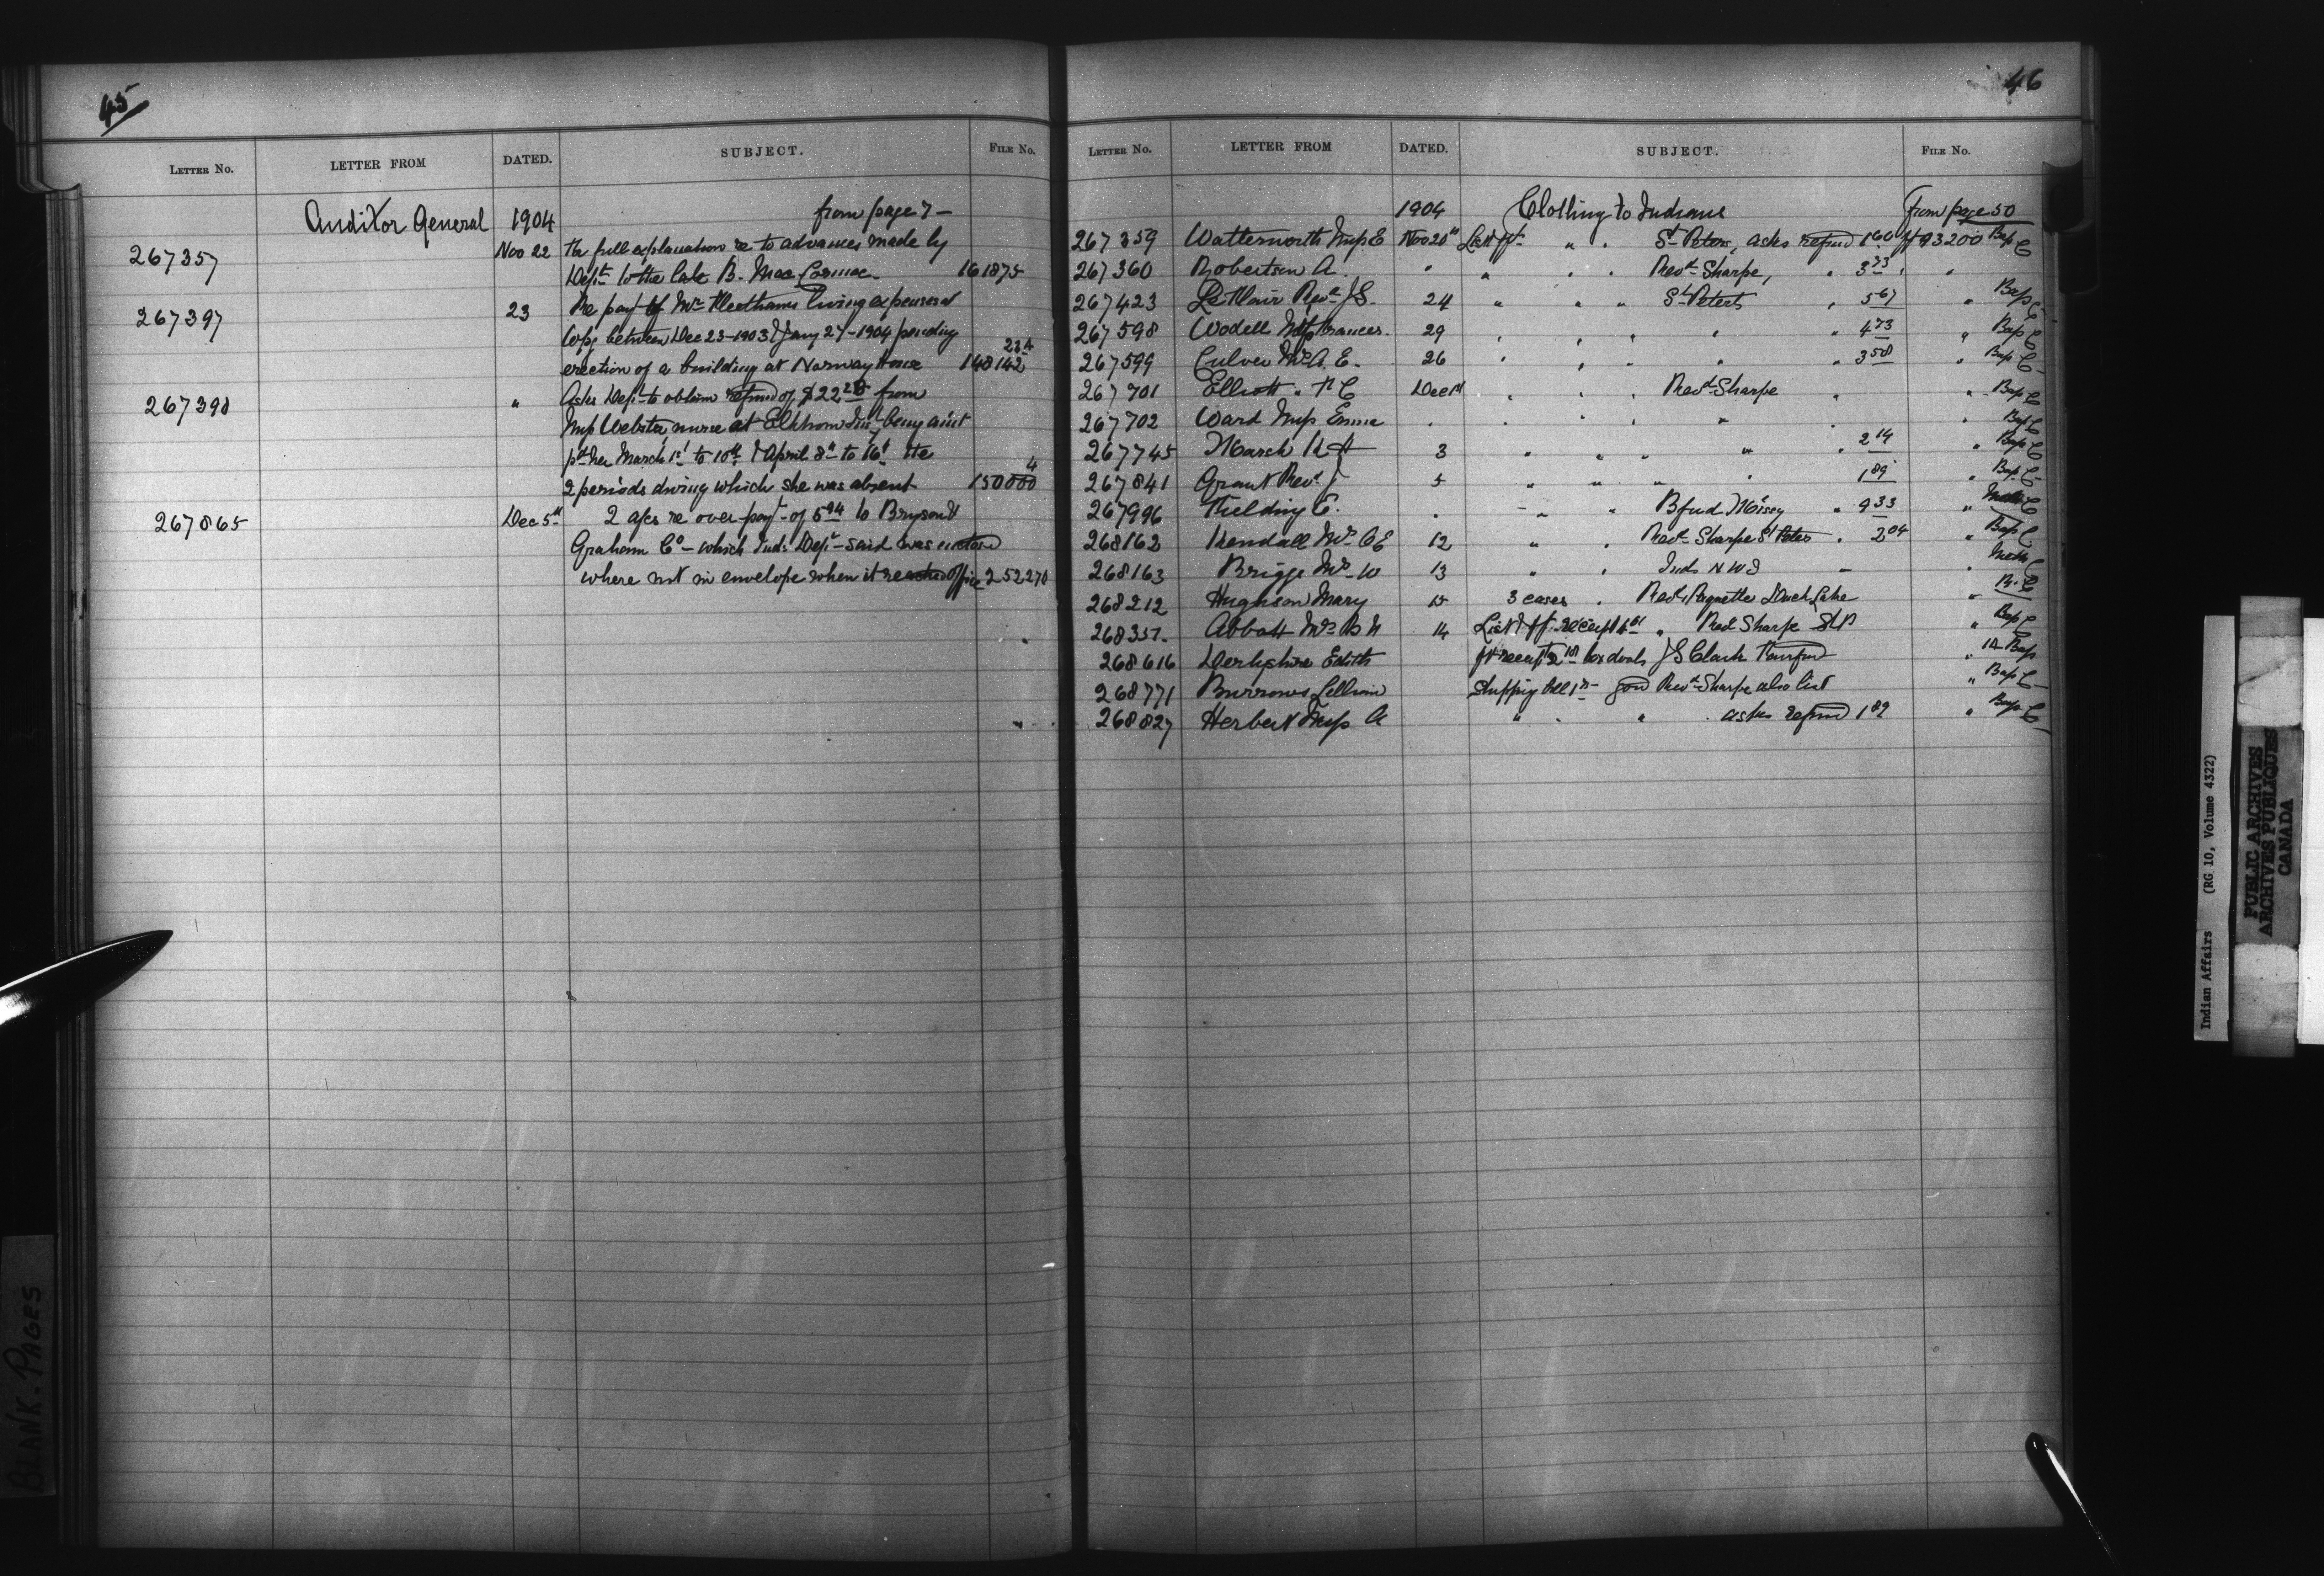 45
LETTER NO. LETTER FROM DATED. SUBJECT. FILE No.
Auditor General 1904 from page 7 -
267357 Nov 22 full explanation re to advances made by
Dept to the late B. Mac Cormac 161875
267397 23 Re payt of Mr living expenses at
between Dec 23-1903 & Jany 27-1904 pending 23A
erection of a building at Norway House 148142
267398 " Asks Dept to obtain refund of $22 from
Miss Webster nurse at Elkhorn being amt
pd her March 1st to 10th & April 8th to 16th the 4
2 periods during which she was absent 150000
267865 Dec 5th 2 a/cs re over-payt of 5 94 to Bryson &
Graham Co - which Ind. Dept - said was
where not in envelope when it reached office 252270
46
LETTER No. LETTER FROM DATED. SUBJECT. FILE No.
1904 Clothing to Indians from page 50
267359 Watterworth Miss E Nov 20th List " " St Peters, asks refund 1 60 93200 Bap C
267360 Robertson A. " " " " Revd Sharpe, " 3 73 " "
267423 Revd J S. 24 " " " St Peters " 5 67 " Bap C
267598 Wodell Miss Frances. 29 " " " " " 4 73 " Bap C
267599 Culver Mr A. E. 26 " " " " " 3 58 " Bap C
267701 Elliott " Dec 1st " " " Revd Sharpe " " Bap C
267702 Ward Miss Emma " " " " " " " Bap C
267745 March 3 " " " " " 2 14 " Bap C
267841 Grant Revd J 5 " " " " 1 89 " Bap C
267996 Fielding E. " " " 9 33 "
268162 Kendall Mrs 12 " " Revd Sharpe St Peters " 2 04 " Bap C
268163 Briggs Mrs W 13 " " Inds N W T " " Meth C
268212 Hughson Mary 15 3 cases " Revd Paquette Duck Lake " R. C
268351 Abbott Mrs 14 List & receipt " Revd Sharpe St P " Bap C
268616 Derbyshire Edith receipt J S Clark " Bap
268771 Burrows Shipping bill Revd Sharpe also list " Bap C
268827 Herbert Miss A " " " " asks refund 1 89 " Bap C
BLANK-PAGES
Indian Affairs (RG 10, Volume 4322)
PUBLIC ARCHIVES
ARCHIVES PUBLIQUES
CANADA